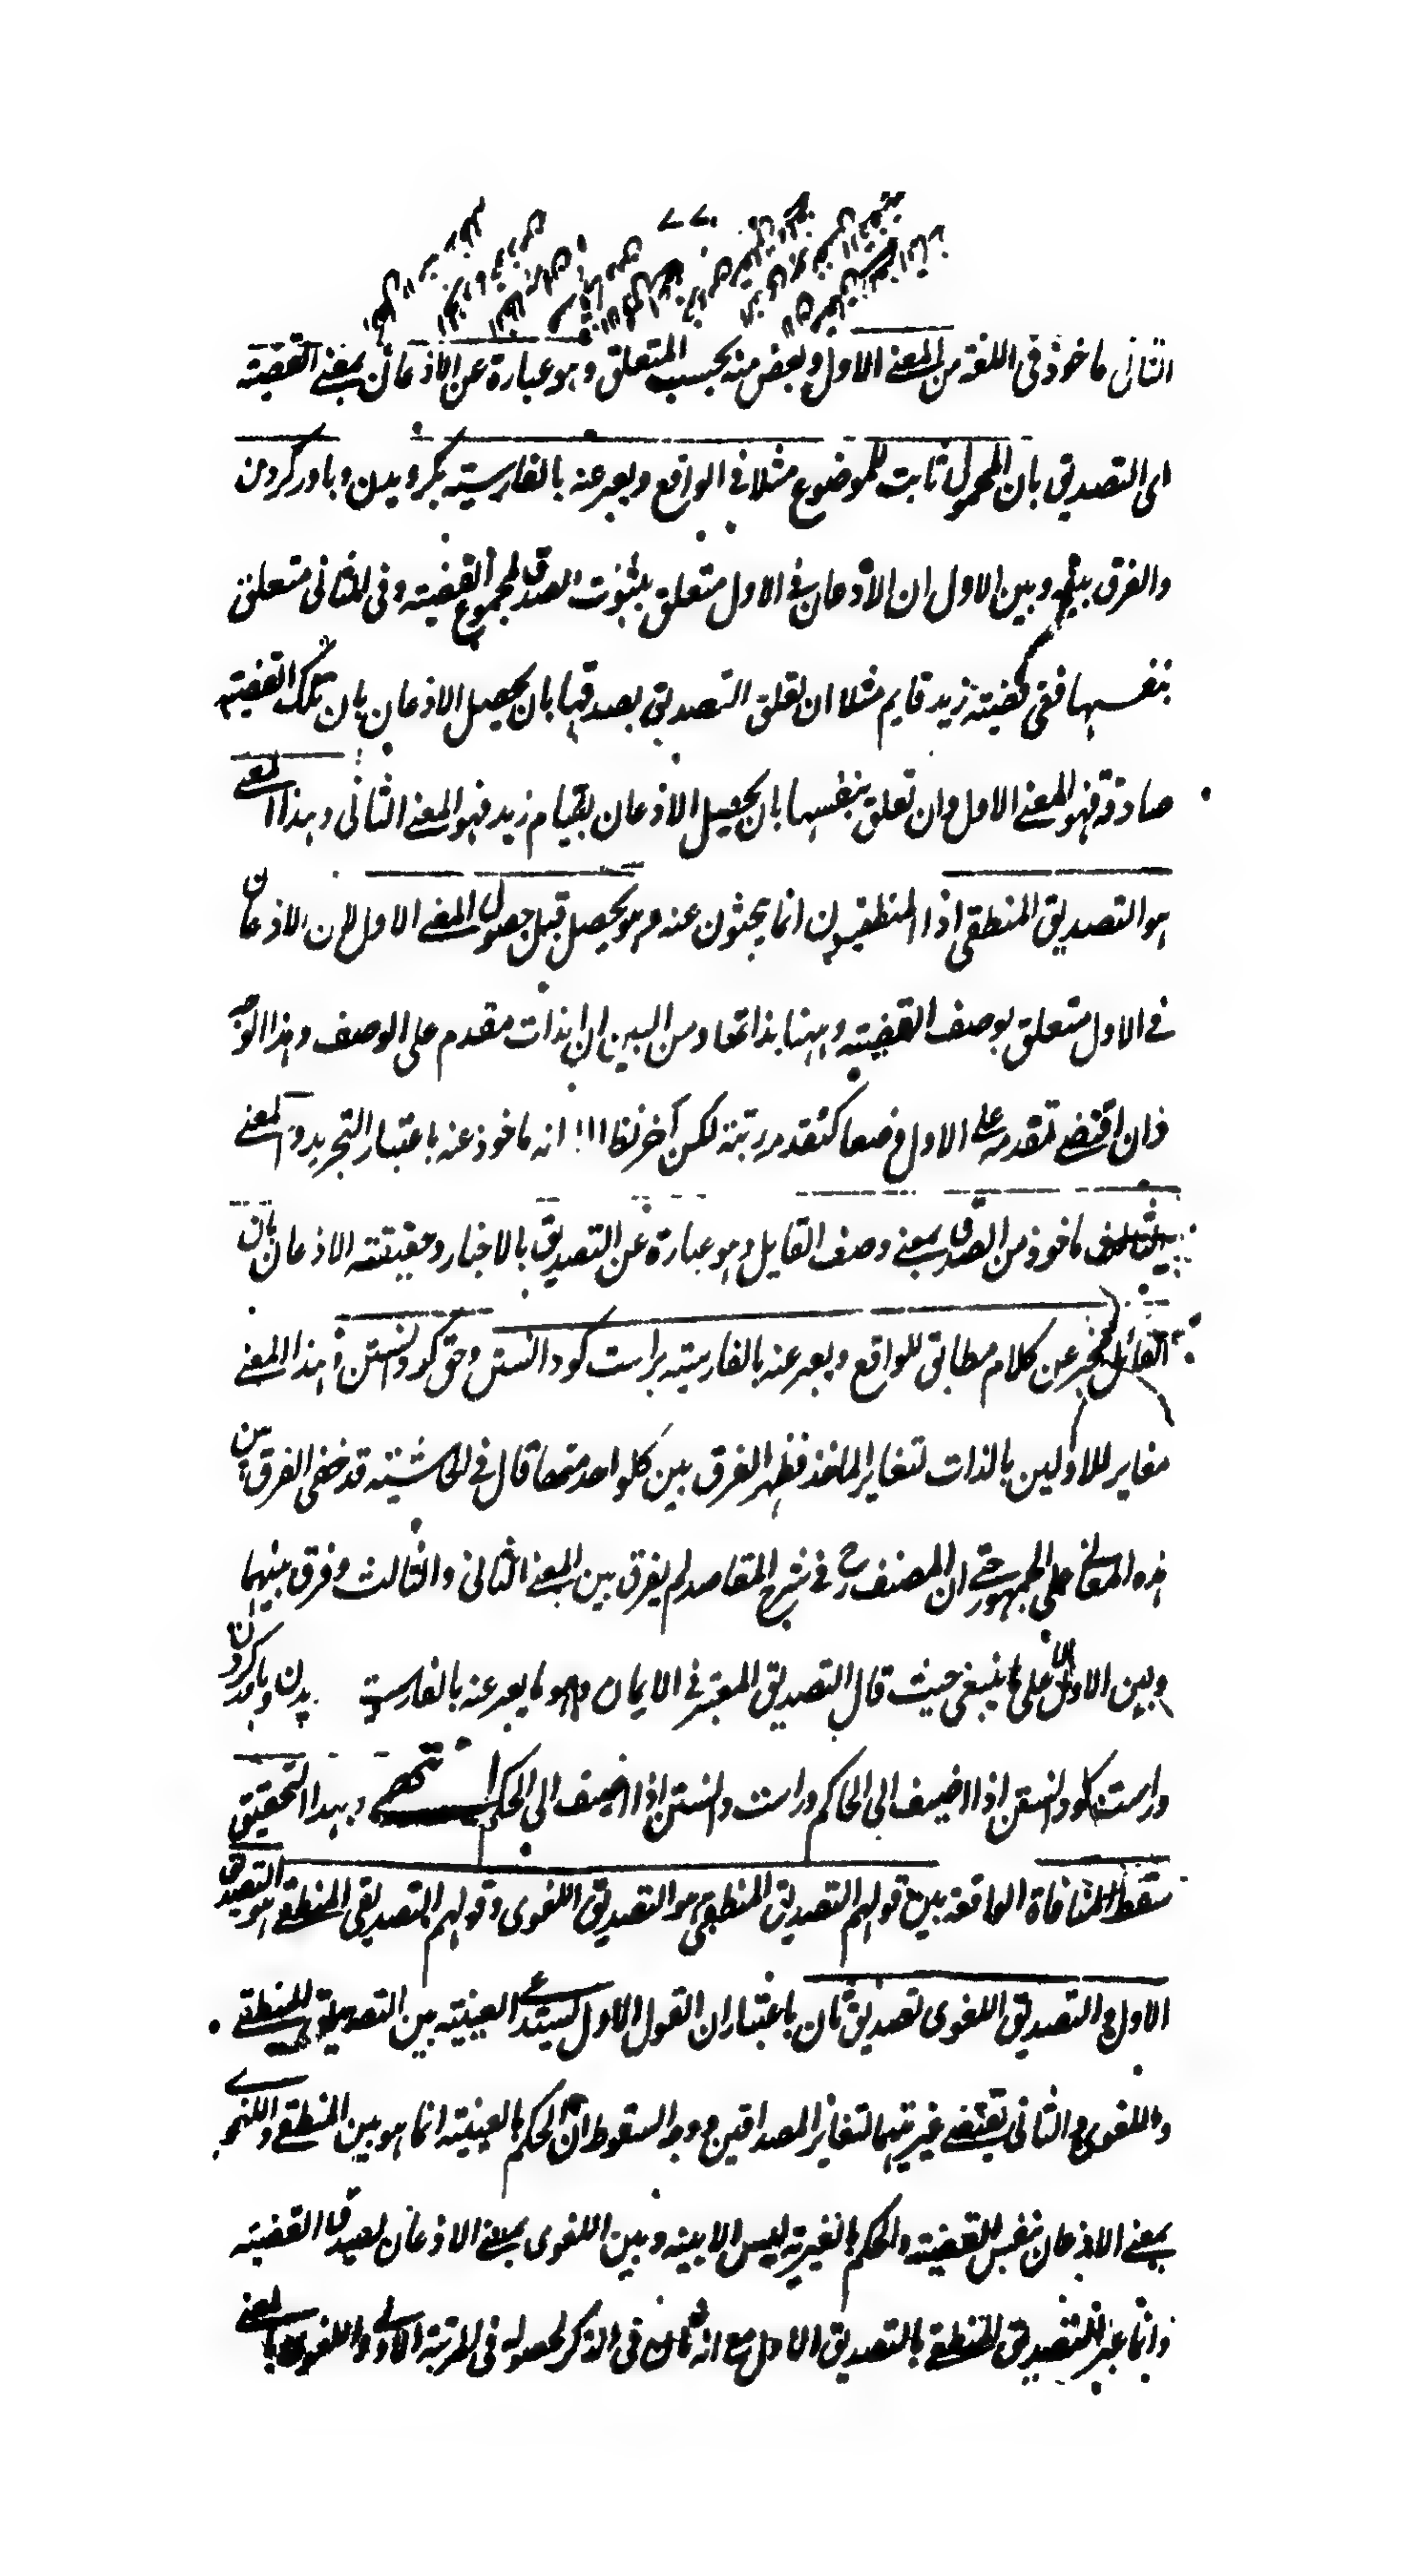 الثانى ماخوذ فى اللغة من المعنى الاول وبعض منه بحسب المتعلق وهو عبارة عن الاذعان بمعنى القضية
اى التصديق بان المحمول ثابت للموضوع مثلا فى الواقع ويعبر عنه بالفارسية بكرويدن وباور كردن
والفرق بينه وبين الاول ان الاذعان فى الاول متعلق بثبوت الصدق لمجموع القضية وفى الثانى متعلق
بنفسها ففى قضية زيد قايم مثلا ان تعلق التصديق بصدقها بان يحصل الاذعان بان تلك القضية
صادقة فهو المعنى الاول وان تعلق بنفسها بان يحصل الاذعان بقيام زيد فهو المعنى الثانى وهذا المعنى
هو التصديق المنطقى اذ المنطقيون انما يبحثون عنه وهو يحصل قبل حصول المعنى الاول لان الاذعان
فى الاول متعلق بوصف القضية وههنا بذاتها ومن البين ان الذات مقدم على الوصف وهذا الوجه
وان اقتضى تقدمه على الاول وضعا كتقدمه رتبة لكن آخر نظرا الى انه ماخوذ عنه باعتبار التجريد والمعنى
الثالث ماخوذ من الصدق بمعنى وصف القايل وهو عبارة عن التصديق بالاخبار وحقيقته الاذعان بان
القائل مخبر عن كلام مطابق للواقع ويعبر عنه بالفارسية براست كو دانستن وحق كو دانستن وهذا المعنى
مغاير للاولين بالذات لتغاير الماخذ فظهر الفرق بين كل واحد منها قال فى الحاشية قد خفى الفرق بين
هذه المعانى على الجمهور حتى ان المصنف رح فى شرح المقاصد لم يفرق بين المعنى الثانى والثالث وفرق بينهما
وبين الاول على ما ينبغى حيث قال التصديق المعتبر فى الايمان هو ما يعبر عنه بالفارسية يدن وباور كردن
وراست كو دانستن اذا اضيف الى الحاكم وراست دانستن اذا اضيف الى الحكم انتهى وبهذا التحقيق
سقط المنافاة الواقعة بين قولهم التصديق المنطقى هو التصديق اللغوى وقولهم التصديق المنطقى هو التصديق
الاول والتصديق اللغوى تصديق ثان باعتبار ان القول الاول يستدعى العينية بين التصديق المنطقى
واللغوى والثانى يقتضى غيريتهما لتغاير المصداقين ووجه السقوط ان الحكم بالعينية انما هو بين المنطقى واللغوى
بمعنى الاذعان بنفس القضية والحكم بالغيرية ليس الا بينه وبين اللغوى بمعنى الاذعان بصدق القضية
وانما عبر التصديق المنطقى بالتصديق الاول مع انه ثان فى الذكر لحصوله فى المرتبة الاولى واللغوى بالمعنى